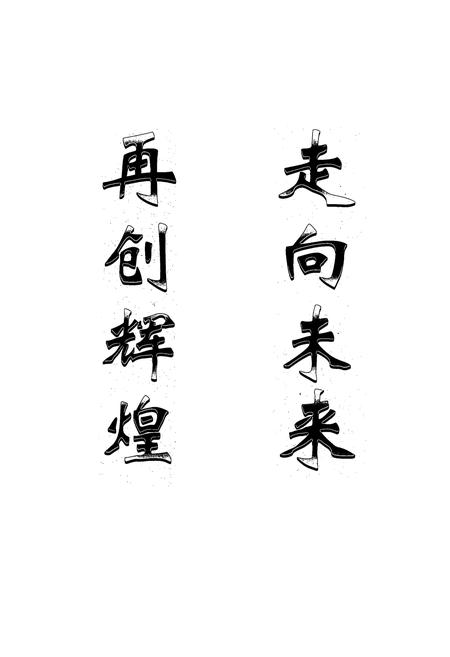 走向未来
再创辉煌